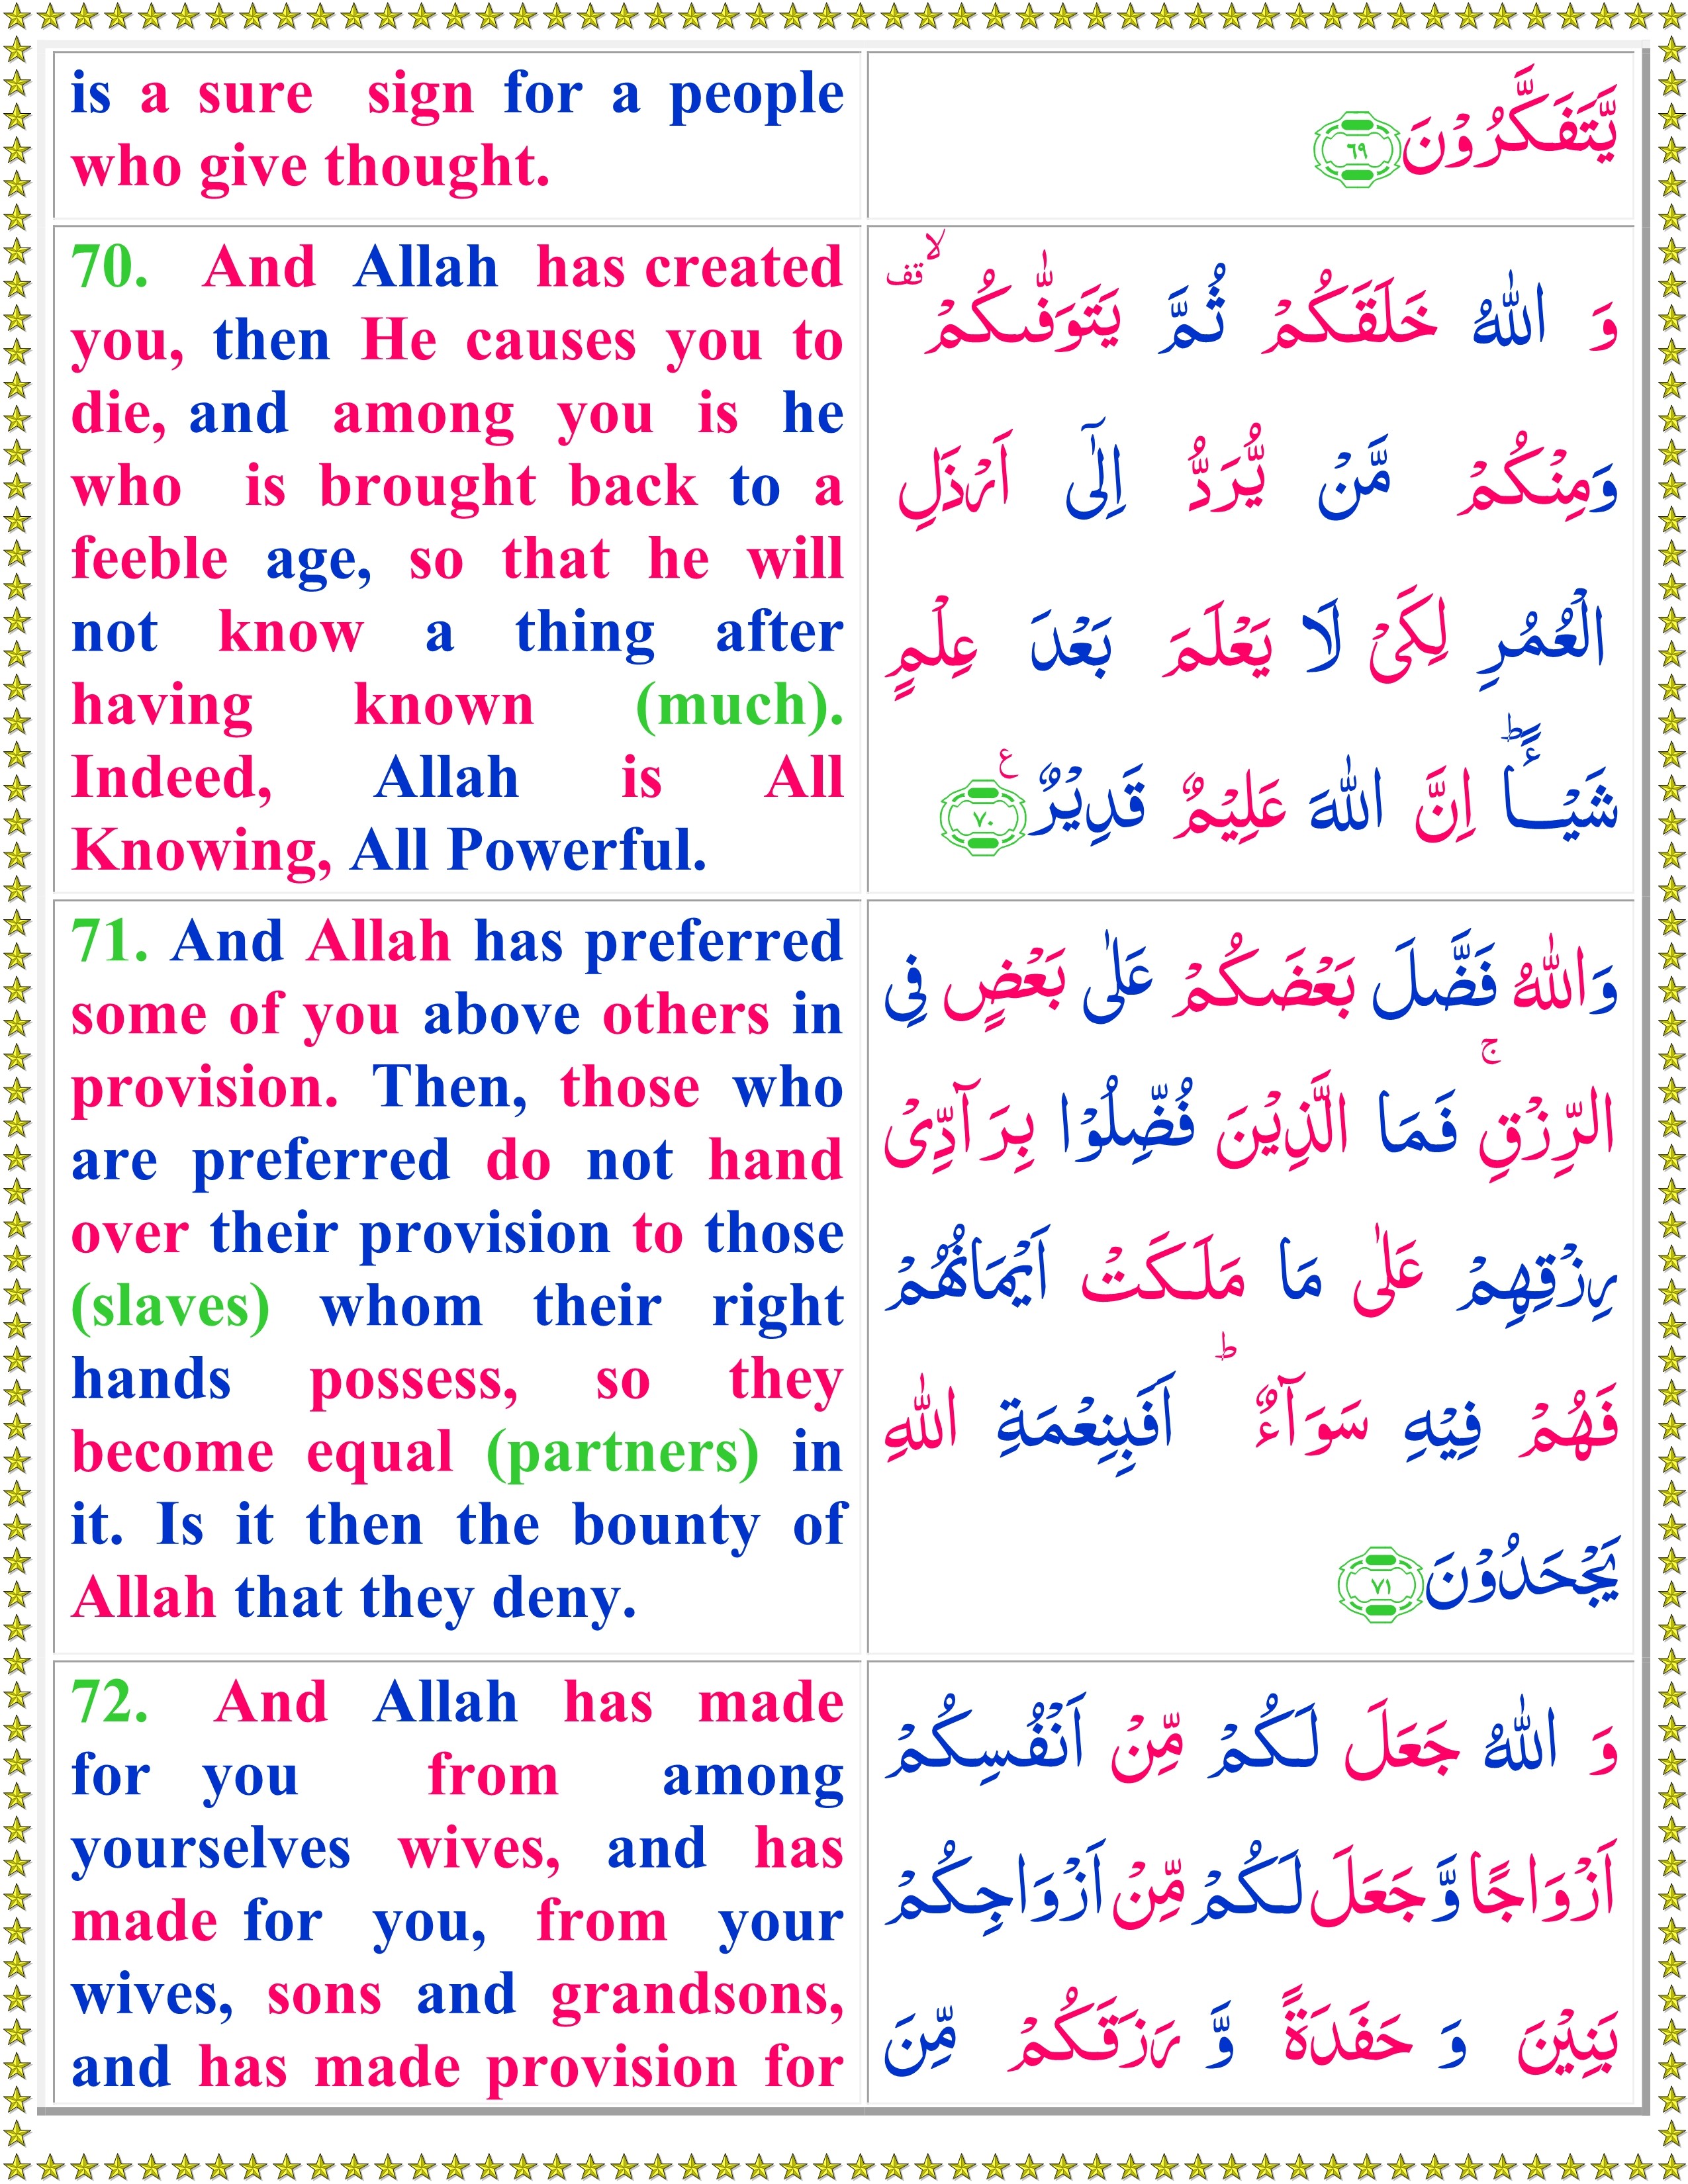 is a sure sign for a people
who give thought.
يَّتَفَكَّرُوْنَ ﴿۶۹﴾
70. And Allah has created
you, then He causes you to
die, and among you is he
who is brought back to a
feeble age, so that he will
not know a thing after
having known (much).
Indeed, Allah is All
Knowing, All Powerful.
وَ اللّٰهُ خَلَقَكُمْ ثُمَّ يَتَوَفّٰٮكُمْ ۙ قف
وَمِنْكُمْ مَّنْ يُّرَدُّ اِلٰٓى اَرْذَلِ
الْعُمُرِ لِكَىْ لَا يَعْلَمَ بَعْدَ عِلْمٍ
شَيْــًٔـا ؕ اِنَّ اللّٰهَ عَلِيْمٌ قَدِيْرٌ ﴿۷۰﴾ ع
71. And Allah has preferred
some of you above others in
provision. Then, those who
are preferred do not hand
over their provision to those
(slaves) whom their right
hands possess, so they
become equal (partners) in
it. Is it then the bounty of
Allah that they deny.
وَاللّٰهُ فَضَّلَ بَعْضَكُمْ عَلٰى بَعْضٍ فِى
الرِّزْقِ ۚ فَمَا الَّذِيْنَ فُضِّلُوْا بِرَآدِّىْ
رِزْقِهِمْ عَلٰى مَا مَلَـكَتْ اَيْمَانُهُمْ
فَهُمْ فِيْهِ سَوَآءٌ ؕ اَفَبِنِعْمَةِ اللّٰهِ
يَجْحَدُوْنَ ﴿۷۱﴾
72. And Allah has made
for you from among
yourselves wives, and has
made for you, from your
wives, sons and grandsons,
and has made provision for
وَ اللّٰهُ جَعَلَ لَـكُمْ مِّنْ اَنْفُسِكُمْ
اَزْوَاجًا وَّ جَعَلَ لَـكُمْ مِّنْ اَزْوَاجِكُمْ
بَنِيْنَ وَ حَفَدَةً وَّ رَزَقَكُمْ مِّنَ